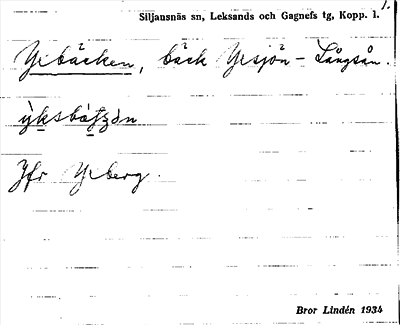 1.
Siljansnäs sn, Leksands och Gagnefs tg, Kopp. l.
Yxbäcken, bäck Yxsjön - Långsån.
Jfr Yxberg.
Bror Lindén 1934